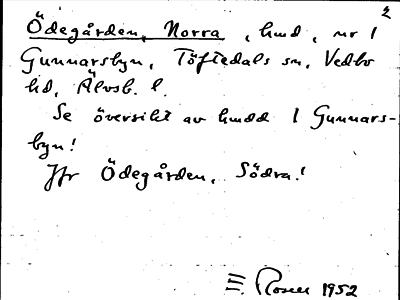 2
Ödegården, Norra, hmd, nr 1
Gunnarsbyn, Töftedals sn, Vedbo
hd, Älvsb. l.
Se översikt av hmdd i Gunnars-
byn!
Jfr Ödegården, Södra!
E. Rosell 1952